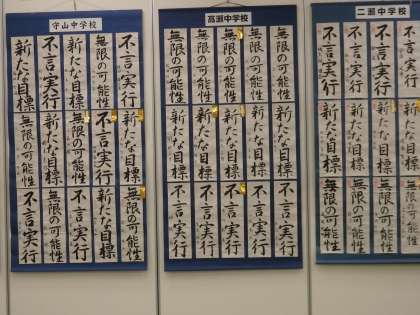 守山中学校
不言実行
無限の可能性
新たな目標
不言実行
新たな目標
新たな目標
不言実行
無限の可能性
新たな目標
無限の可能性
無限の可能性
新たな目標
不言実行
無限の可能性
不言実行
高瀬中学校
無限の可能性
無限の可能性
無限の可能性
無限の可能性
無限の可能性
新たな目標
新たな目標
新たな目標
新たな目標
新たな目標
不言実行
不言実行
不言実行
不言実行
不言実行
二瀬中学校
不言実行
不言実行
不言実行
不言実行
新たな目標
新たな目標
新たな目標
新たな目標
無限の可能性
無限の可能性
無限の可能性
無限の可能性